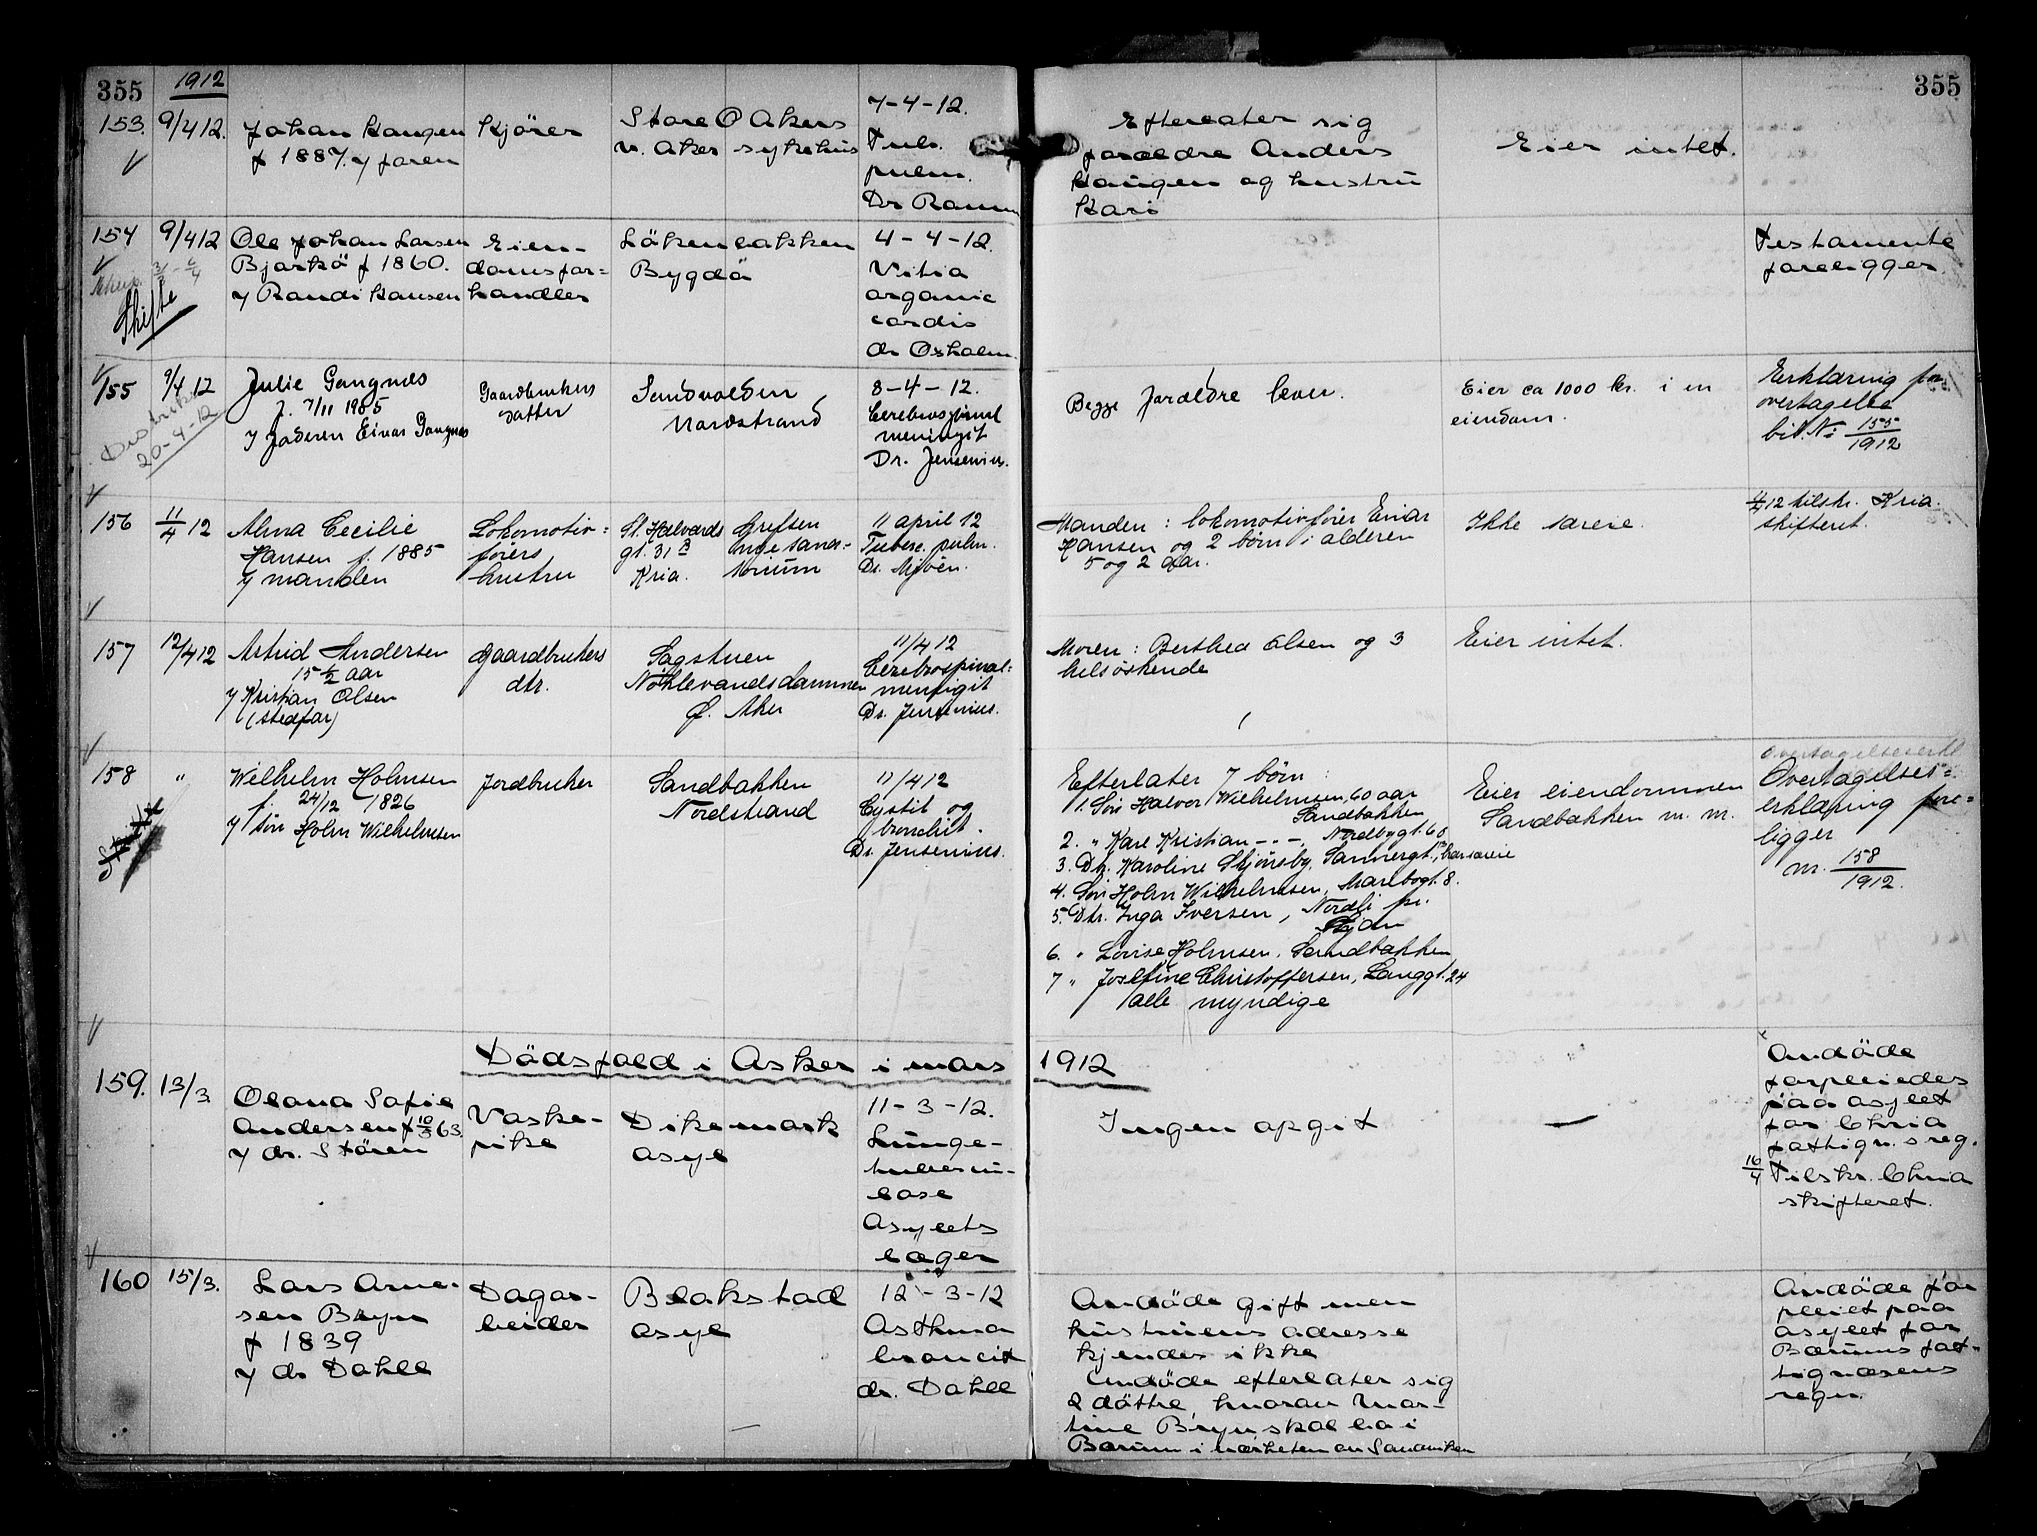 355
1912
355
153. 9/4 12. Johan Haugen
f 1887. y faren
Kjörer
Store Ö Akers
v. Aker sykehus
7-4-12.
Tub.
pulm.
Dr Ramm
Efterlater sig
forældre Anders
Haugen og hustru
Kari
Eier intet.
154 9/4 12 Ole Johan Larsen
Bjarkö f 1860.
y Randi Hansen
Skifte
Eien-
domsfor=
handler
Lökenlokken
Bygdö
4-4-12.
Vitia
organic
cordis
dr Oxholm
Testamente
foreligger.
155 9/4 12 Julie Gangnæs
f. 7/11 1985
y faderen Einar Gangnæs
20-4-12
Gaardbrukers
datter
Sandvolden
Nordstrand
8-4-12.
Cerebrospinal
meningit
Dr. Jensenius.
Begge forældre lever.
Eier ca 1000 kr. i en
eiendom.
Erklæring for
overtagelse
bil. N: 155/1912
156 11/4 12 Alma Cecilie
Hansen f. 1885
y manden
Lokomotiv=
förers
hustru
St. Halvards
gt. 31 3
Kria.
Grefsen
nye sana-
torium
11 april 12
Tuberc. pulm.
Dr. Mjöen.
Manden: lokomotivförer Einar
Hansen og 2 börn i alderen
5 og 2 aar.
Ikke særeie.
4/12 tilskr. Kria.
skifteret.
157 12/4 12 Astrid Andersen
15 1/2 aar
y Kristian Olsen
(stedfar)
Gaardbrukers
dtr.
Sagstuen
Nöklevandsdammen
Ö. Aker
11/4 12
Cerebrospinal=
meningit
Dr. Jensenius.
Moren: Berthea Olsen og 3
helsöskende
Eier intet.
158 " Wilhelm Holmsen
f. 24/12 1826
y sön Holm Wilhelmsen
Jordbruker
Sandbakken
Nordstrand
11/4 12
Cystit og
bronchit.
Dr. Jensenius.
Efterlater 7 börn:
1. Sön Halvor Wilhelmsen, 60 aar
Sandbakken
2. " Karl Kristian -"-, Nordbygt. 60
3. Dtr. Karoline Skjönsby, Sannergt.
4. Sön Holm Wilhelmsen, Maribogt. 8.
5. Dtr. Inga Iversen, Nordli pr.
6. " Lovise Holmsen, Sandbakken
7 " Josefine Christoffersen, Langgt. 24
alle myndige
Eier eiendommen
Sandbakken m. m.
Overtagelseserkl
Overtagelses=
erklæring fore=
ligger
m. 158/1912.
Dödsfald i Asker i mars 1912
159. 13/3. Olana Sofie
Andersen f 10/3 63.
y dr. Stören
Vaske-
pike
Dikemark
asyl
11-3-12.
Lunge-
tuberku-
lose
Asylets
læge
Ingen opgit
—
Avdöde
forpleiedes
paa asylet
for Chria
fattigv.s reg.
16/4 Tilskr. Chria
skifteret.
160 15/3. Lars Arne-
sen Bryn
f 1839
y dr Dahll
Dagar-
beider
Blakstad
asyl
12-3-12
Asthma
broncit
dr. Dahll
Avdöde gift men
hustruens adresse
kjendes ikke
Avdöde efterlater sig
2 döttre, hvorav Mar-
tine Bryn skal bo i
Bærum i nærheten av Sandviken
Avdöde for
pleiet paa
asylet for
Bærums fat-
tigvæsens
regn.